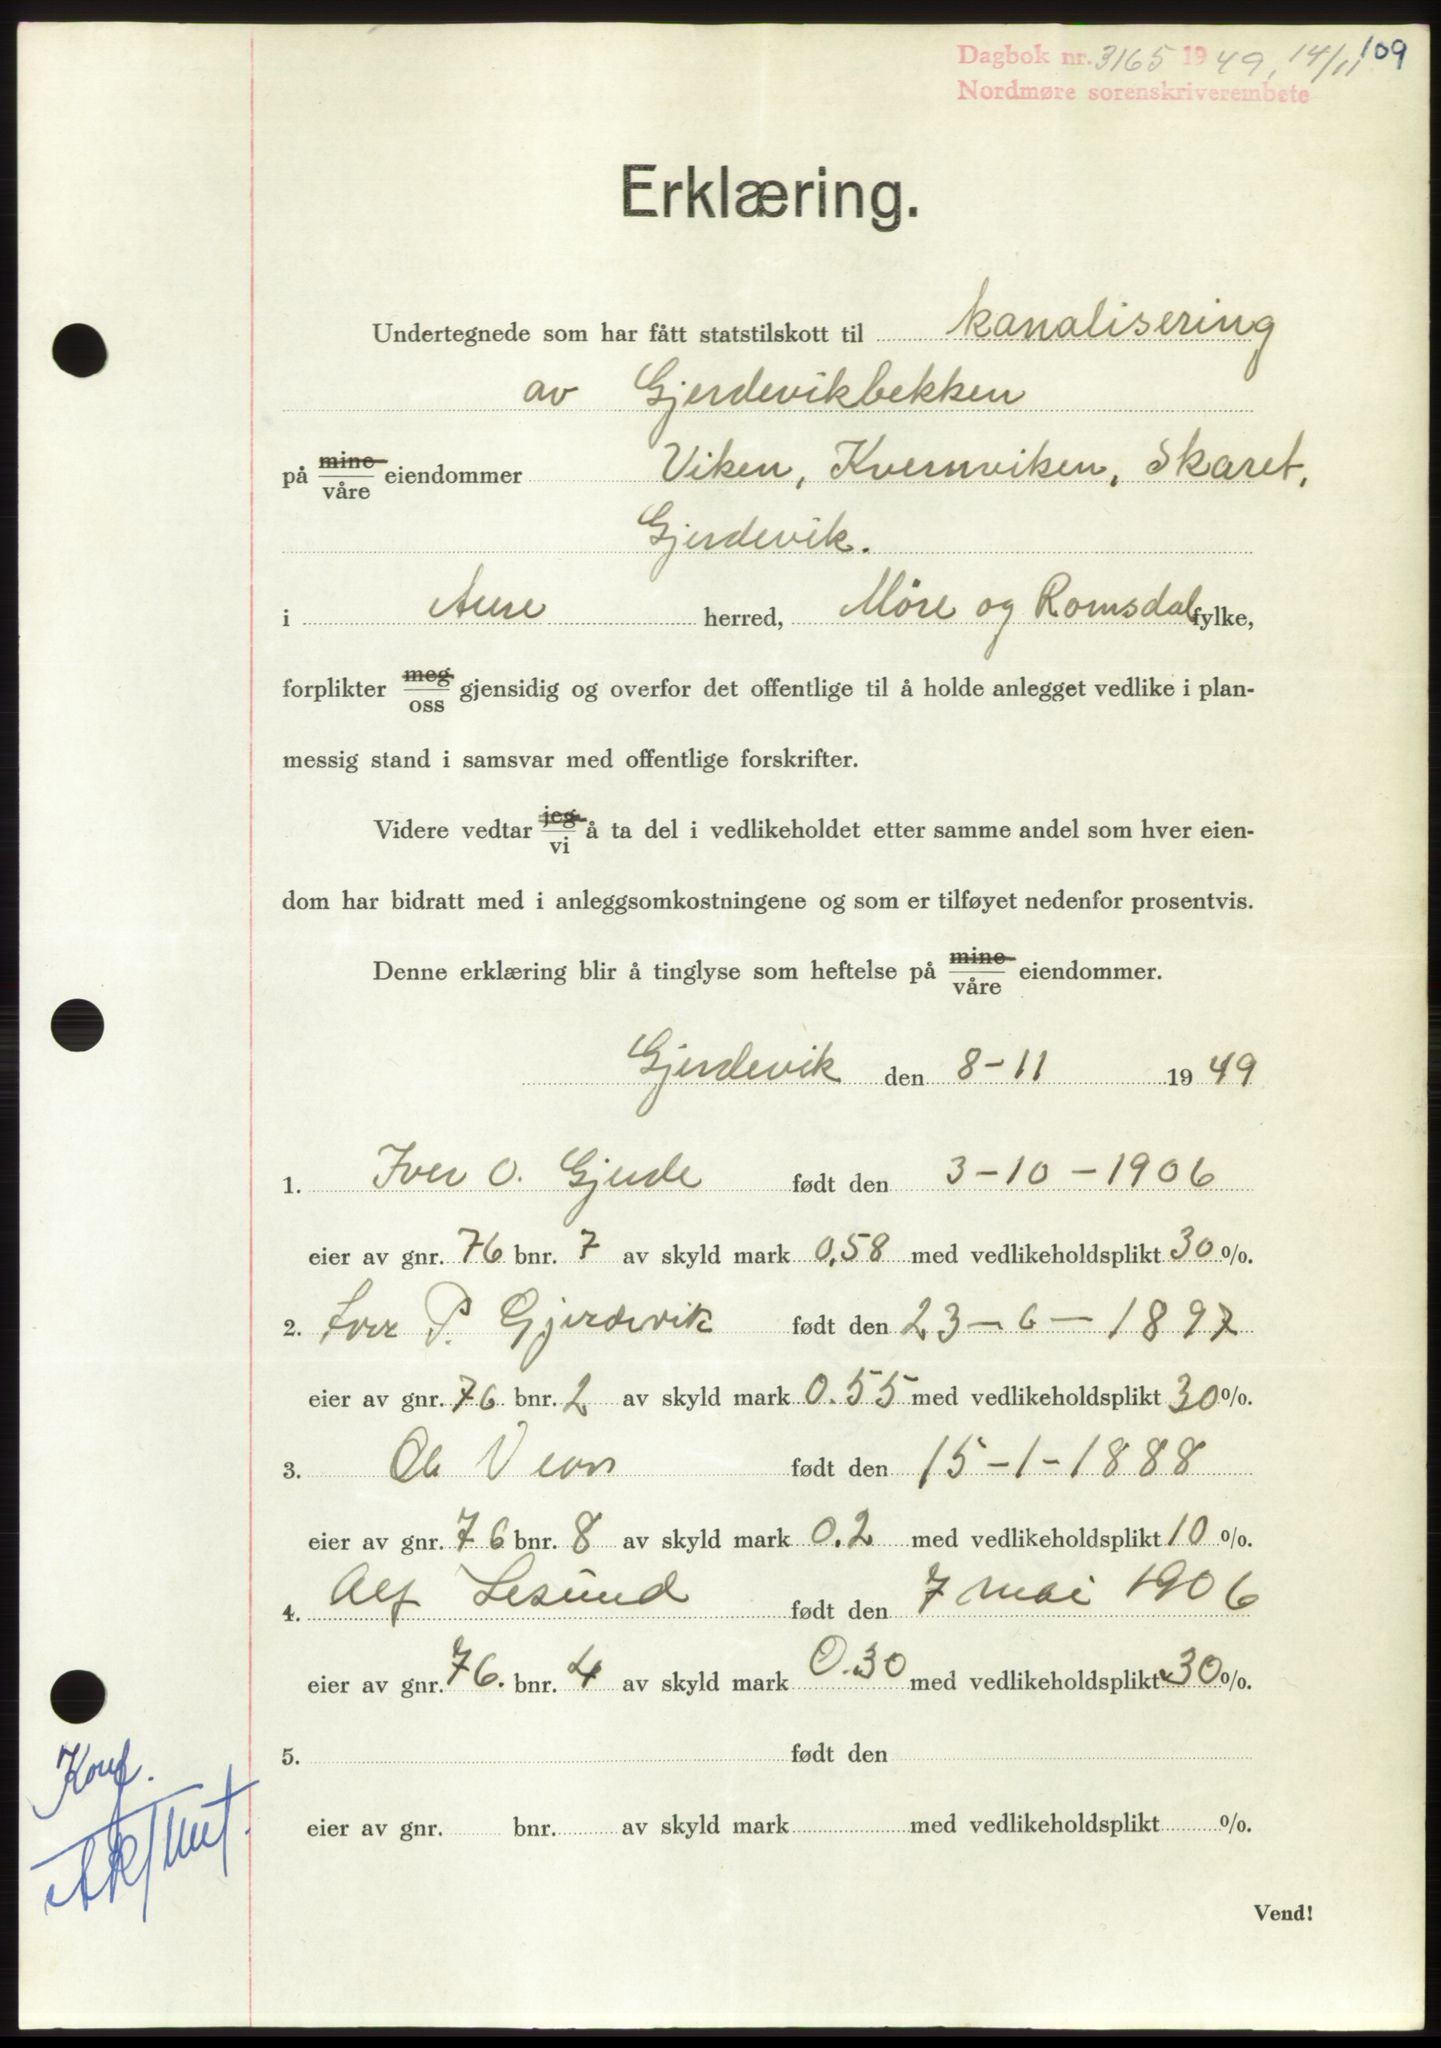 Dagbok nr. 3165 1949, 14/11 109
Nordmøre sorenskriverembete
Erklæring.
Undertegnede som har fått statstilskott til kanalisering
av Gjerdevikbekken
på mine/våre eiendommer Viken, Kvernviken, Skaret,
Gjerdevik.
i Aure herred, Møre og Romsdal fylke,
forplikter meg/oss gjensidig og overfor det offentlige til å holde anlegget vedlike i plan-
messig stand i samsvar med offentlige forskrifter.
Videre vedtar jeg/vi å ta del i vedlikeholdet etter samme andel som hver eien-
dom har bidratt med i anleggsomkostningene og som er tilføyet nedenfor prosentvis.
Denne erklæring blir å tinglyse som heftelse på mine/våre eiendommer.
Gjerdevik den 8-11 1949
1. Iver O. Gjerde født den 3-10-1906
eier av gnr. 76 bnr. 7 av skyld mark 0,58 med vedlikeholdsplikt 30 %.
2. Iver P. Gjerdevik født den 23-6-1897
eier av gnr. 76 bnr. 2 av skyld mark 0.55 med vedlikeholdsplikt 30 %.
3. Ole født den 15-1-1888
eier av gnr. 76 bnr. 8 av skyld mark 0.2 med vedlikeholdsplikt 10 %.
4. Alf Lesund født den 7 mai 1906
eier av gnr. 76. bnr. 4 av skyld mark 0.30 med vedlikeholdsplikt 30 %.
5. født den
eier av gnr. bnr. av skyld mark med vedlikeholdsplikt %.
Konf.
Vend!